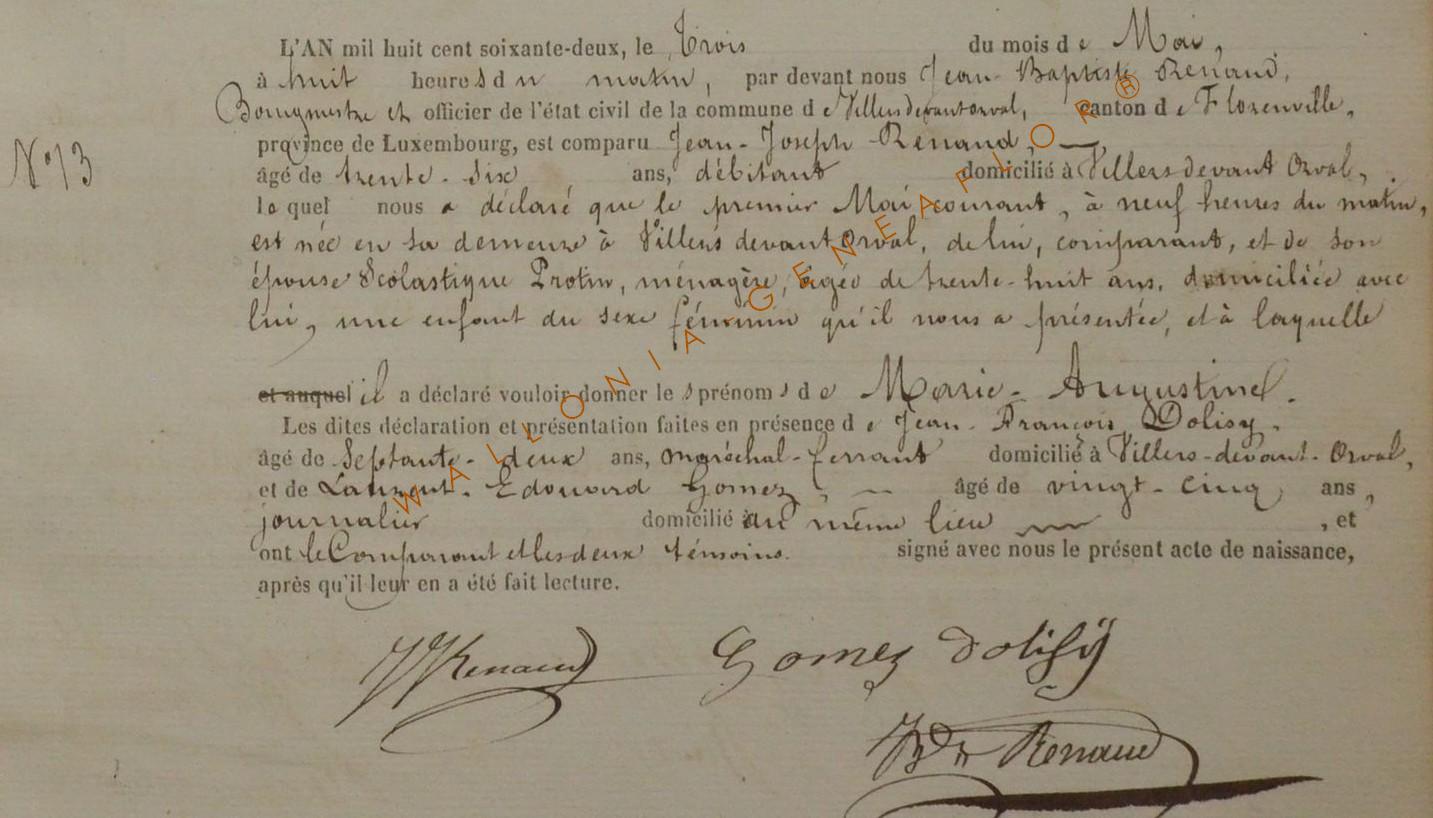 L'AN mil huit cent soixante-deux, le Trois du mois de Mai,
à huit heures du matin, par devant nous Jean-Baptiste Renaud,
Bourgmestre et officier de l'état civil de la commune de Villersdevantorval, canton de Florenville,
province de Luxembourg, est comparu Jean-Joseph Renaud,
N° 13
âgé de trente-six ans, débitant domicilié à Villers devant Orval,
lequel nous a déclaré que le premier Mai courant, à neuf heures du matin,
est née en sa demeure à Villers devant Orval, de lui, comparant, et de son
épouse Scolastique Protin, ménagère, âgée de trente-huit ans, domiciliée avec
lui, une enfant du sexe féminin qu'il nous a présentée, et à laquelle
et auquel il a déclaré vouloir donner les prénoms de Marie-Augustine.
Les dites déclaration et présentation faites en présence de Jean-François Dolisy,
âgé de Septante-deux ans, maréchal-ferrant domicilié à Villers-devant-Orval,
et de Laurent-Edouard Gomez, âgé de vingt-cinq ans,
journalier domicilié au même lieu, et
ont le Comparant et les deux témoins signé avec nous le présent acte de naissance,
après qu'il leur en a été fait lecture.
JJRenaud Gomez Dolisy
Renaud
WALLONIA-GENEAFLOR®